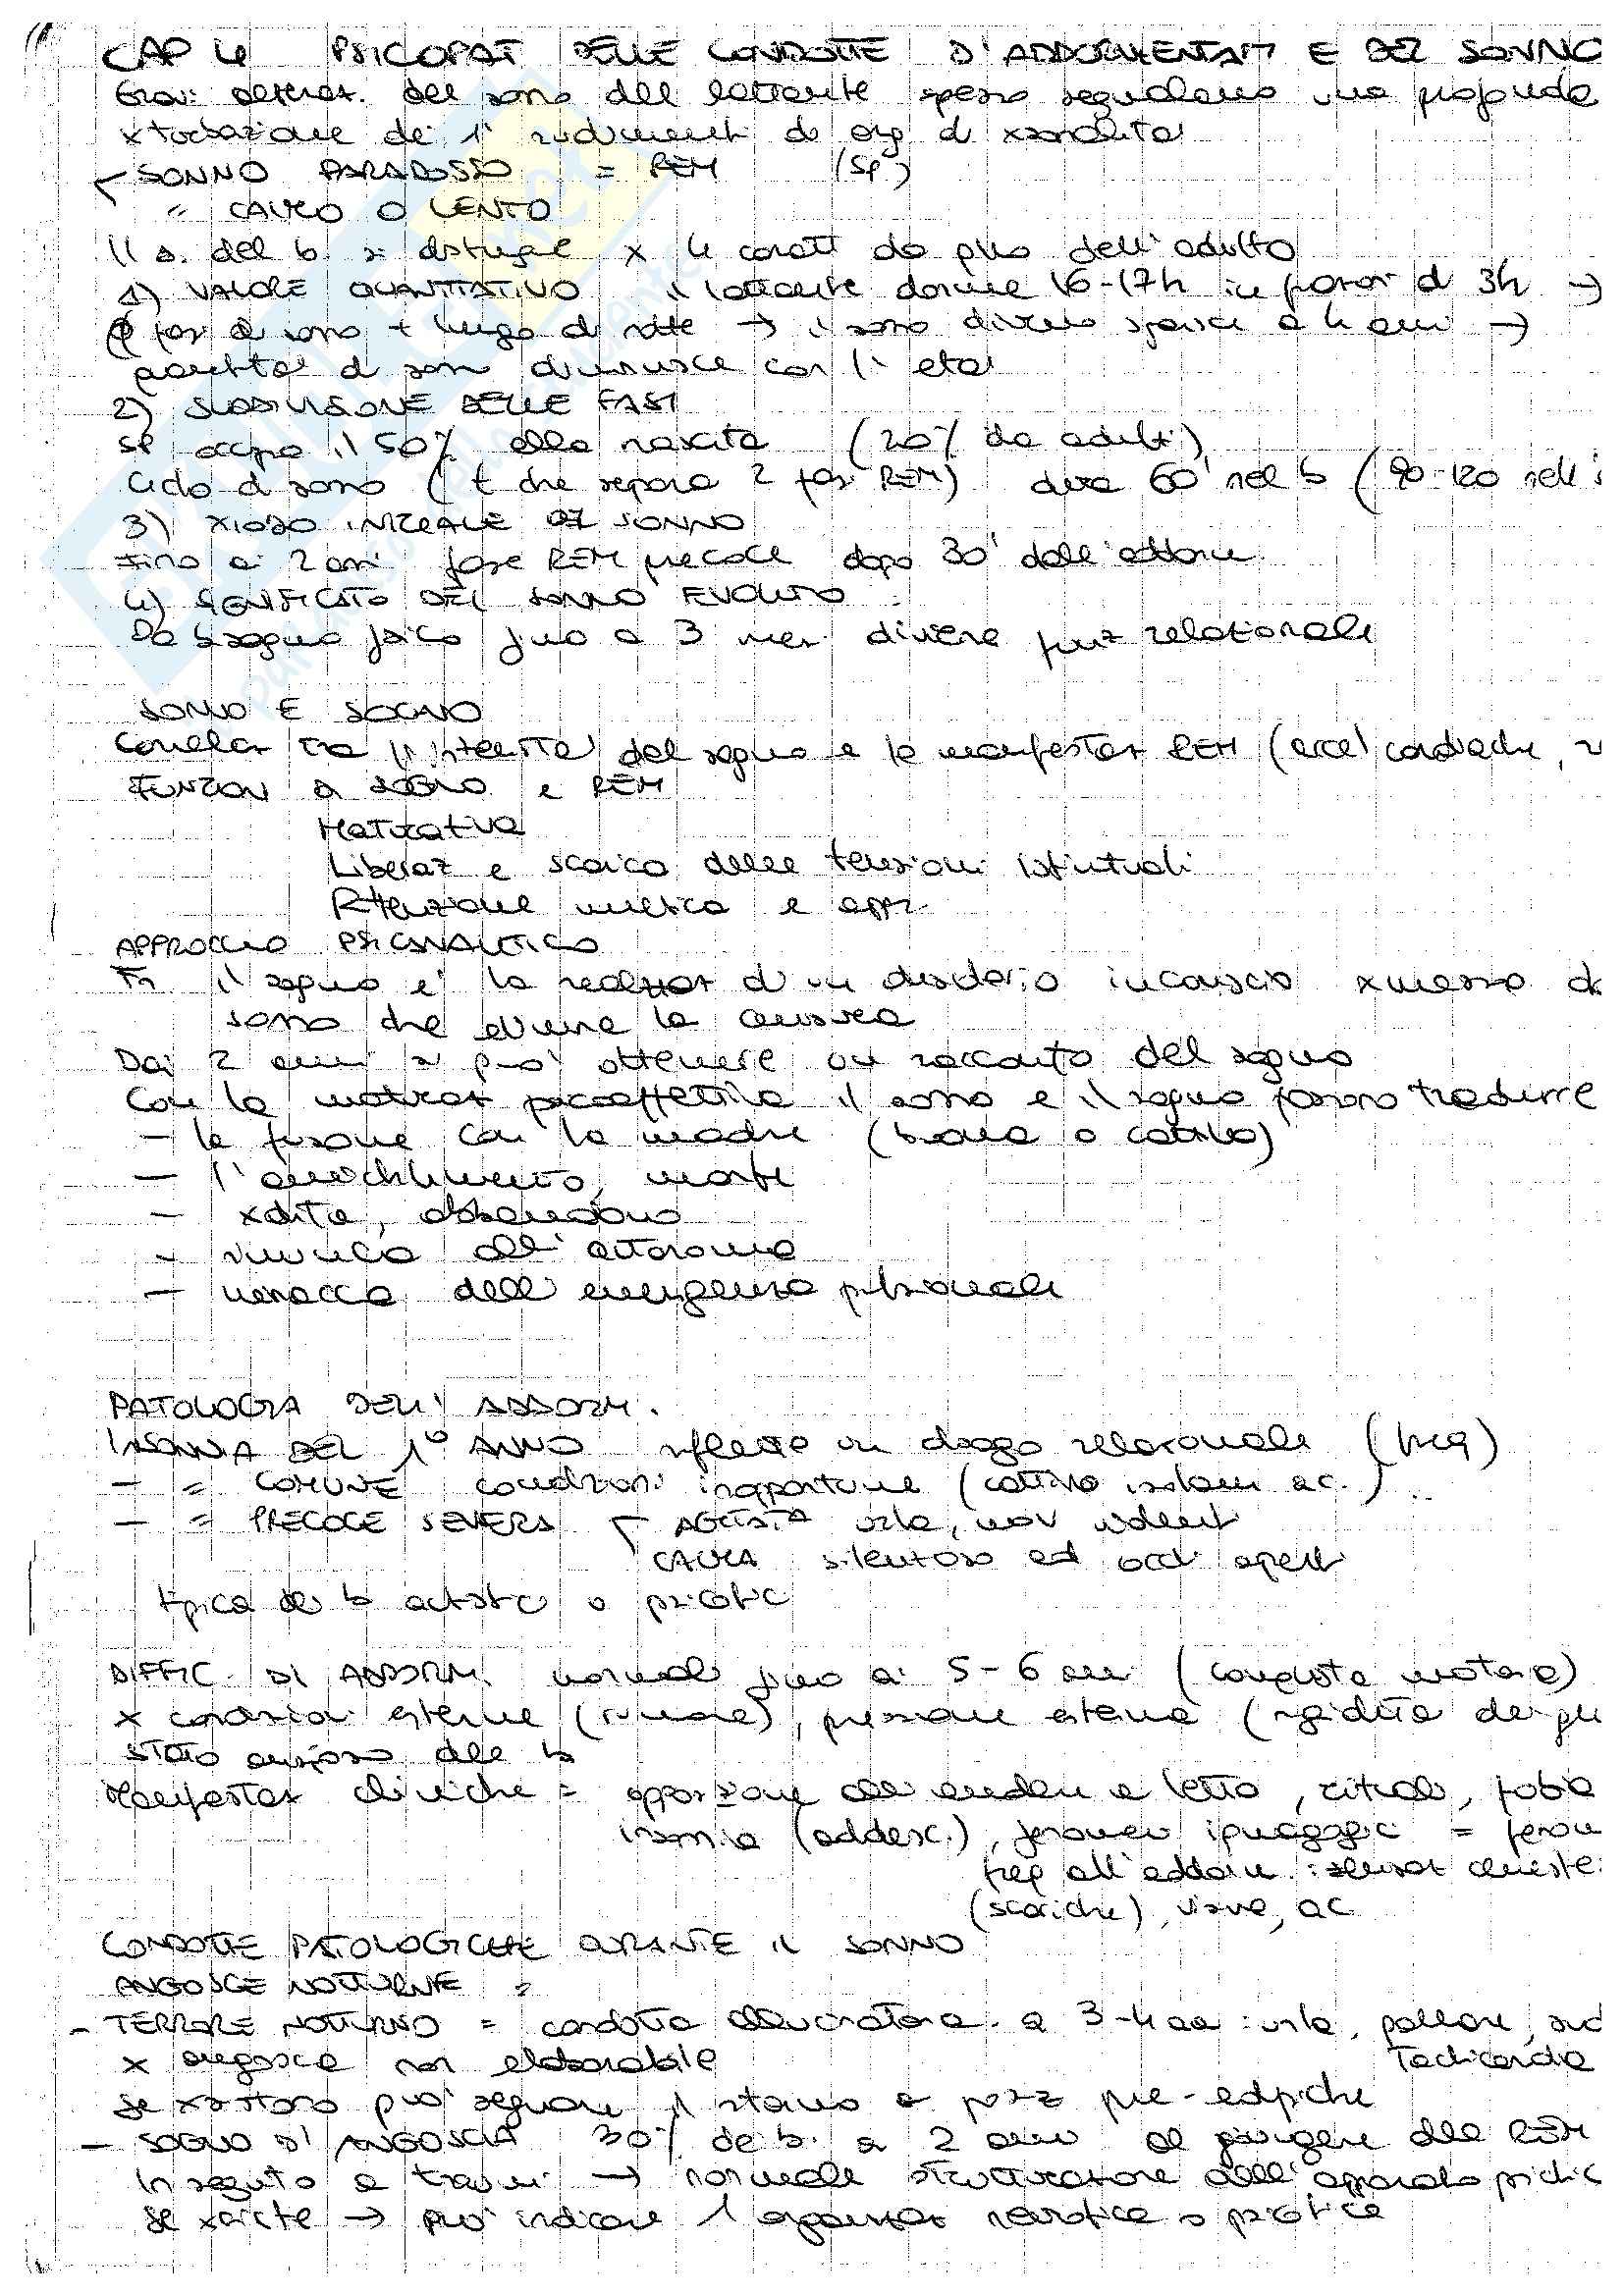 CAP 4 PSICOPAT DELLE CONDOTTE D'ADDORMENTAM E DEL SONNO
Gravi alteraz. del sonno del lattante spesso segnalano una profonda
xturbazione dei 1i rudimenti di org di xsonalità
SONNO PARADOSSO = REM (SP)
" CALMO O LENTO
Il s. del b. si distingue x 4 caratt da qllo dell'adulto
1) VALORE QUANTITATIVO il lattante dorme 16-17h in frazioni di 3h →
fasi di sonno + lunga di notte → il sonno diurno sparisce a 4 anni →
quantità di sonno diminuisce con l'età
2) SUDDIVISIONE DELLE FASI
SP occupa il 50% alla nascita (20% da adulti)
Ciclo di sonno (t che separa 2 fasi REM) dura 60' nel b (90-120 nell'
3) XIODO INIZIALE DEL SONNO
Fino ai 2 anni fase REM precoce dopo 30' dall'addorm
4) SIGNIFICATO DEL SONNO EVOLUTO
Da bisogno fisico fino a 3 mesi diviene funz relazionale
SONNO E SOGNO
Correlaz tra l'intensità del sogno e le manifestaz REM (accel cardiache,
FUNZIONI DI SOGNO e REM
Maturativa
Liberaz e scarica delle tensioni istintuali
Ritenzione mnesica e appr.
APPROCCIO PSICANALITICO
Fr il sogno è la realizzaz di un desiderio inconscio xmesso da
sonno che elimina la censura
Dai 2 anni si può ottenere un racconto del sogno
Con la maturaz psicoaffettiva il sonno e il sogno possono tradurre
- la fusione con la madre (buona o cattiva)
- l'annichilimento, morte
- xdita, abbandono
- rinuncia all'autonomia
- minaccia dell'emergenza pulsionale
PATOLOGIA DELL'ADDORM.
INSONNIA DEL 1° ANNO riflesso un disagio relazionale
- " COMUNE condizioni inopportune (cattivo isolam ac.)
- " PRECOCE SEVERA AGITATA urla, mov violenti
CALMA silenzioso ed occhi aperti
tipica dei b autistici o psicotici
DIFFIC. DI ADDORM. normale fino ai 5-6 anni (conquista motoria)
x condizioni esterne (rumore), pressione esterna (rigidità dei
stato ansioso del b
Manifestaz cliniche = opposizione all'andare a letto, rituali, fobia
insonnia (adolesc.), fenomeni ipnagogici =
freq all'addorm : sensaz cineste
(scariche), visive, ac
CONDOTTE PATOLOGICHE DURANTE IL SONNO
ANGOSCE NOTTURNE =
- TERRORE NOTTURNO = condotta allucinatoria a 3-4 aa : urla, pallore,
x angosce non elaborabile Tachicardia
Se xsistono può segnare il ritorno a posiz pre-edipiche
- SOGNO DI ANGOSCIA 30% dei b. a 2 anni al giungere della REM
In seguito a traumi → normale strutturazione dell'apparato psichic
Se xsiste → può indicare 1 organizzaz nevrotica o psicotica